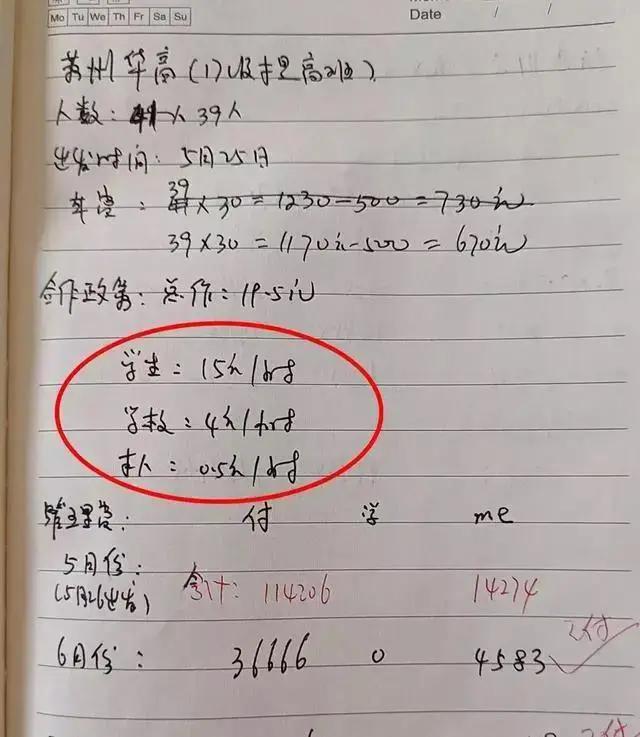 Mo Tu We Th Fr Sa Su
Date / /
苏州华高(1)
人数: 41人 39人
出发时间: 5月25日
车費: 41 39 ×30=1230-500=730元
39×30=1170元-500=670元
合作政策: 总价: 19.5元
学生: 15元/时
学校: 4元/时
本人: 0.5元/时
管理费: 付 学 me
5月份:
(5月26出发) 合计: 114206 14274
6月份: 36666 0 4583 已付